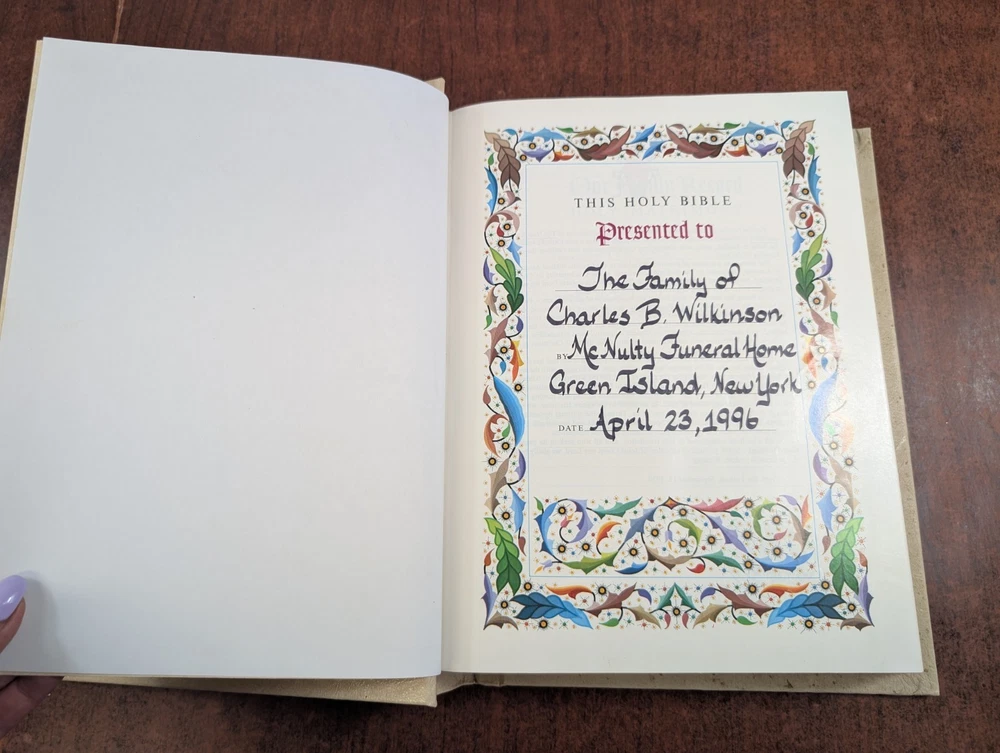 THIS HOLY BIBLE
Presented to
The Family of
Charles B. Wilkinson
BY McNulty Funeral Home
Green Island, New York
DATE April 23, 1996